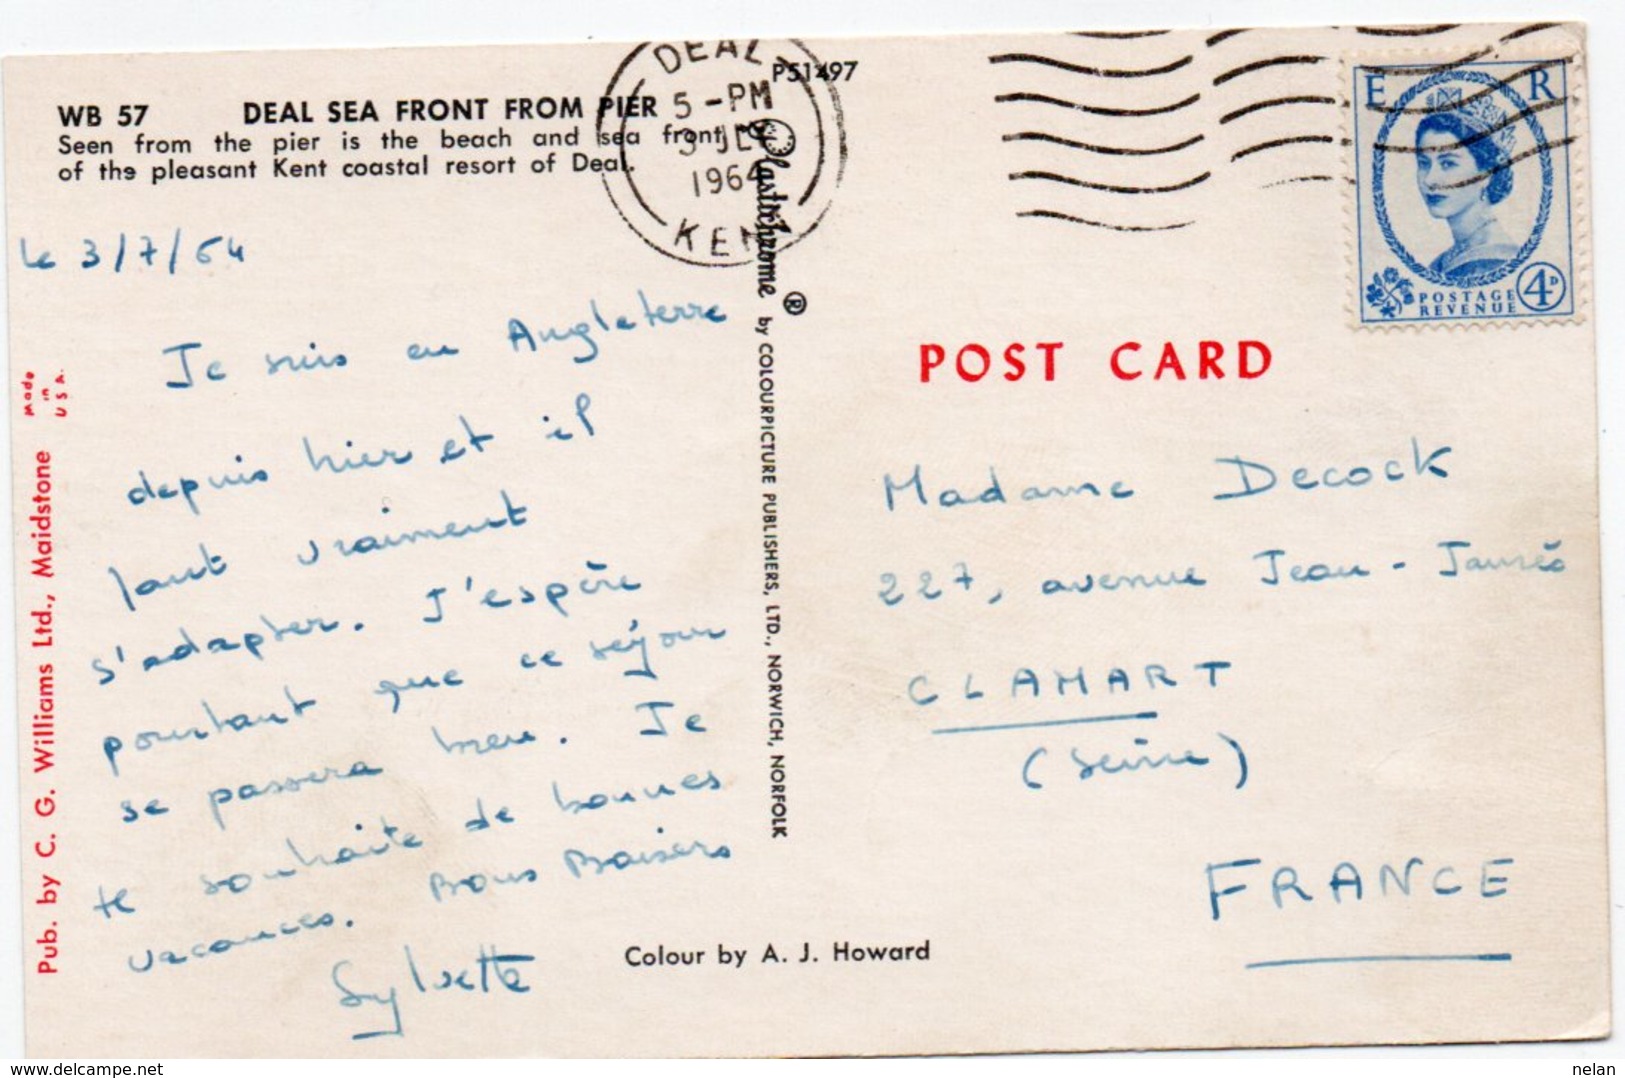 WB 57 DEAL SEA FRONT FROM PIER
Seen from the pier is the beach and sea front
of the pleasant Kent coastal resort of Deal.
P51497
DEAL
5 - PM
3 JLY
1964
KENT
le 3/7/64
Je suis en Angleterre
depuis hier et il
faut vraiment
s'adapter. J'espère
pourtant que ce séjour
se passera bien. Je
te souhaite de bonnes
vacances. Bons Baisers
Sylvette
Pub. by C. G. Williams Ltd., Maidstone
Made
in
U S A.
Plastichrome ® by COLOURPICTURE PUBLISHERS, LTD., NORWICH, NORFOLK
Colour by A. J. Howard
E R
POSTAGE
REVENUE
4D
POST CARD
Madame Decock
227, avenue Jean-Jaurés
CLAMART
(Seine)
FRANCE
nelan
delcampe.net